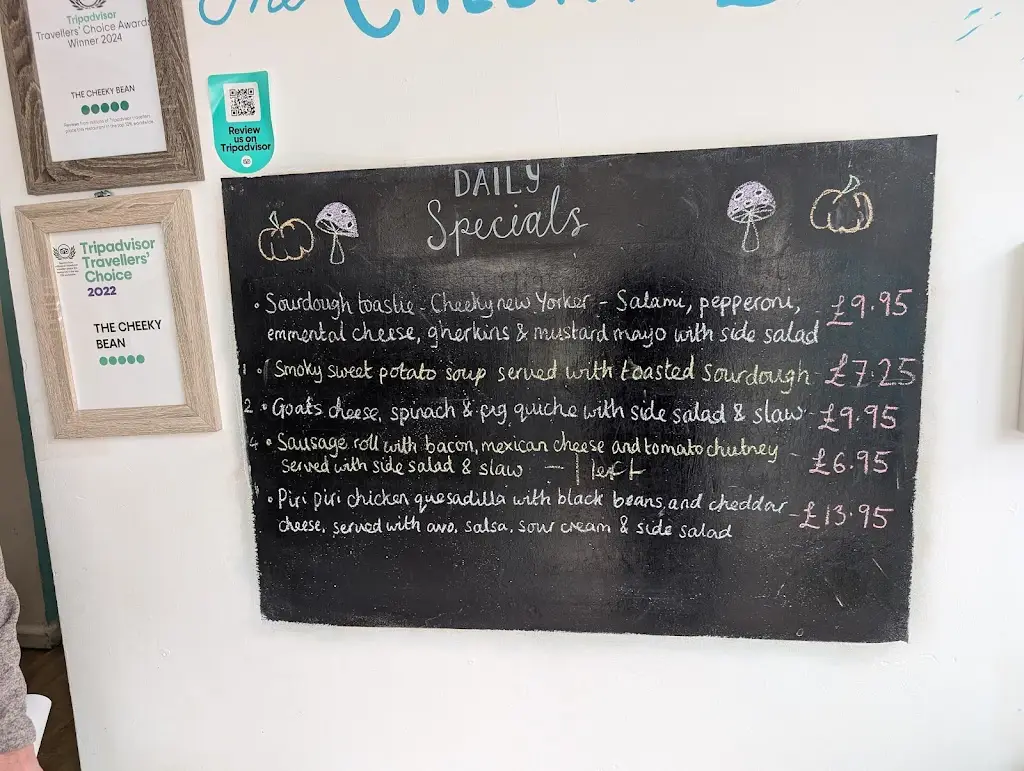 Tripadvisor
Travellers' Choice Awards
Winner 2024
THE CHEEKY BEAN
The CHEEKY B
Review
us on
Tripadvisor
Tripadvisor
Travellers'
Choice
2022
THE CHEEKY
BEAN
DAILY
Specials
• Sourdough toastie - Cheeky new Yorker - Salami, pepperoni, £9.95
emmental cheese, gherkins & mustard mayo with side salad
1 • Smoky sweet potato soup served with toasted sourdough - £7.25
2 • Goats cheese, spinach & fig quiche with side salad & slaw - £9.95
4 • Sausage roll with bacon, mexican cheese and tomato chutney - £6.95
served with side salad & slaw — 1 left
• Piri piri chicken quesadilla with black beans and cheddar - £13.95
cheese, served with avo, salsa, sour cream & side salad